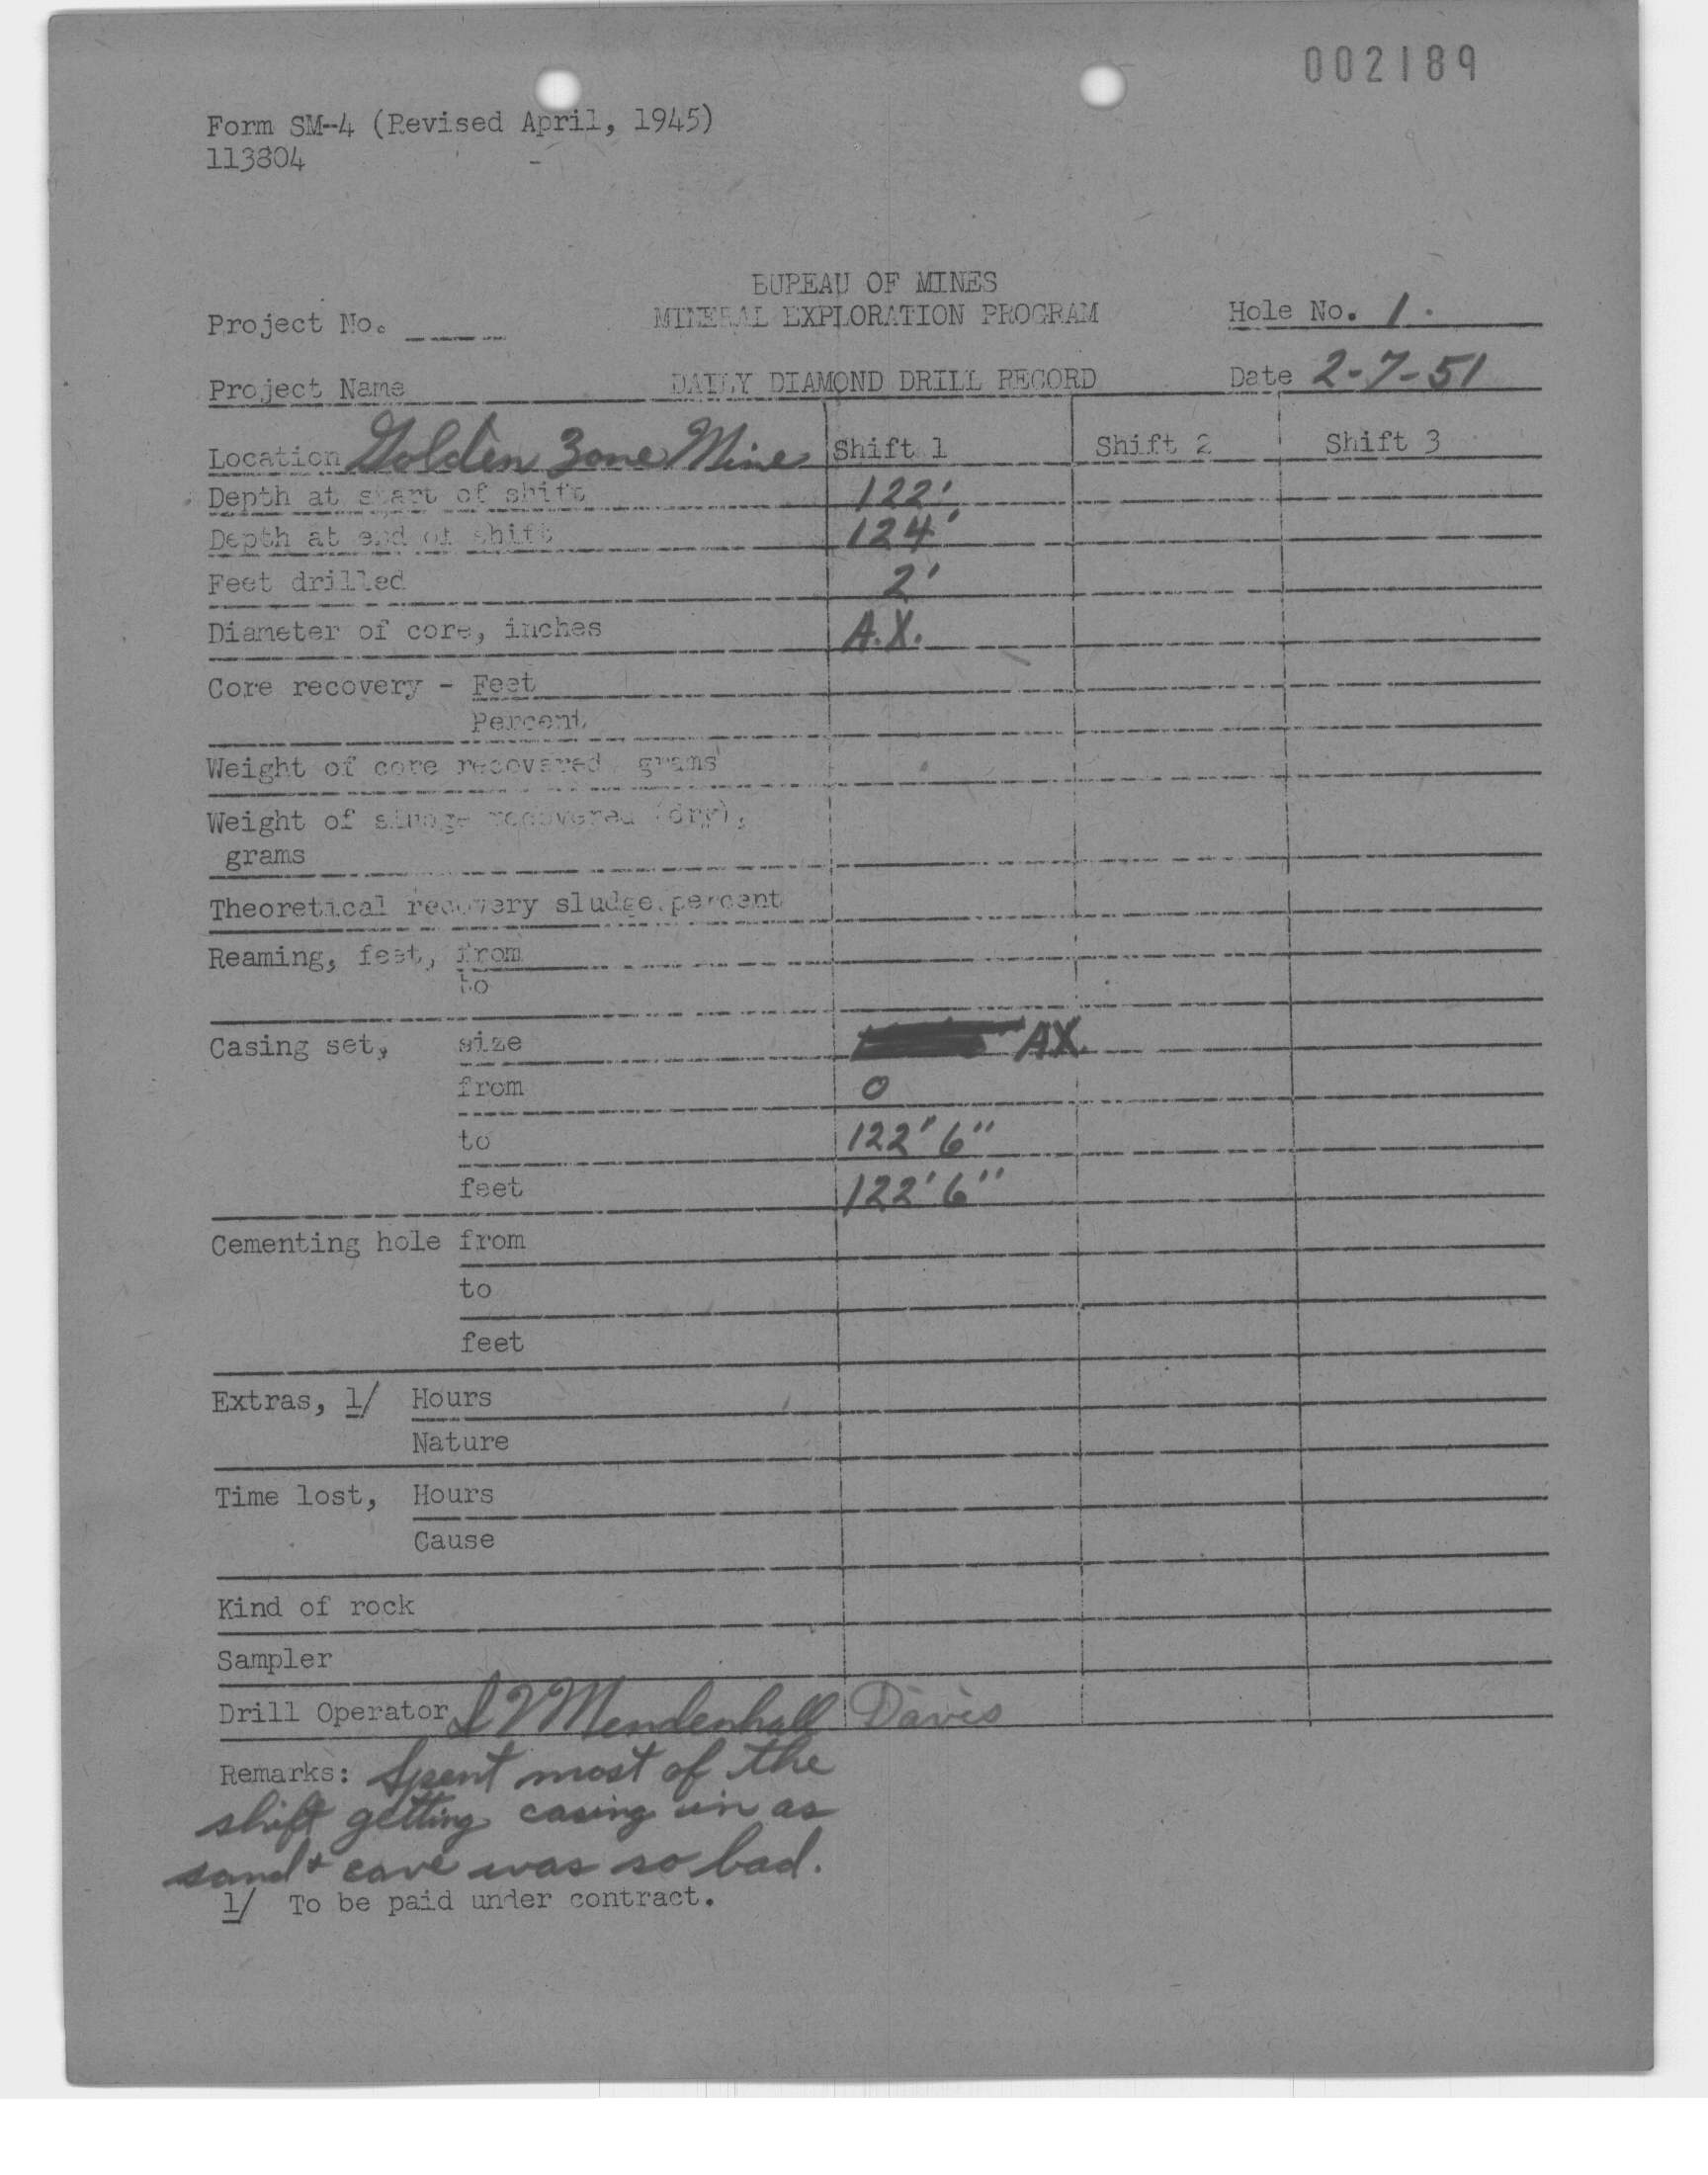 002189
Form SM-4 (Revised April, 1945)
113804
BUREAU OF MINES
Project No. MINERAL EXPLORATION PROGRAM Hole No. 1.
Project Name DAILY DIAMOND DRILL RECORD Date 2-7-51
Location Golden Zone Mine Shift 1 Shift 2 Shift 3
Depth at start of shift 122'
Depth at end of shift 124'
Feet drilled 2'
Diameter of core, inches A.X.
Core recovery - Feet
Percent
Weight of core recovered, grams
Weight of sludge recovered (dry),
grams
Theoretical recovery sludge, percent
Reaming, feet, from
to
Casing set, size AX
from 0
to 122' 6"
feet 122' 6"
Cementing hole from
to
feet
Extras, 1/ Hours
Nature
Time lost, Hours
Cause
Kind of rock
Sampler
Drill Operator Mendenhall Davis
Remarks: Spent most of the
shift getting casing in as
sand + cave was so bad.
1/ To be paid under contract.